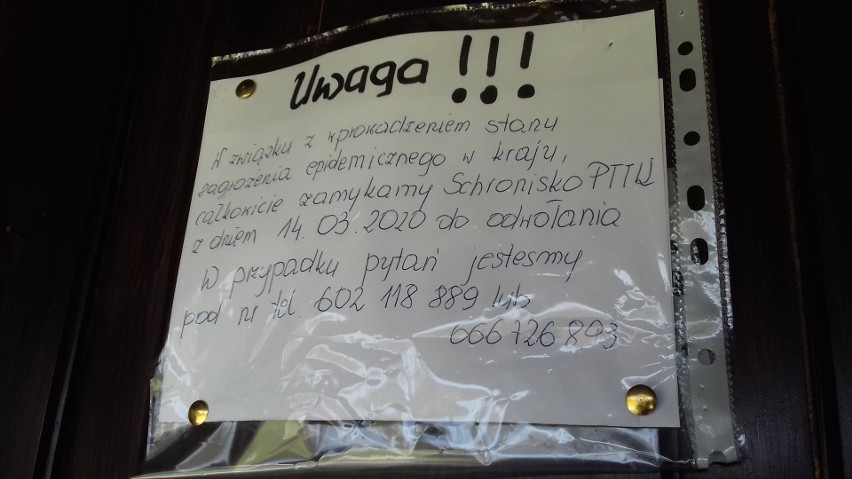 Uwaga !!!
W związku z wprowadzeniem stanu
zagrożenia epidemicznego w kraju,
całkowicie zamykamy Schronisko PTTK
z dniem 14.03.2020 do odwołania
W przypadku pytań jestesmy
pod nr tel. 602 118 889 lub
666 726 893